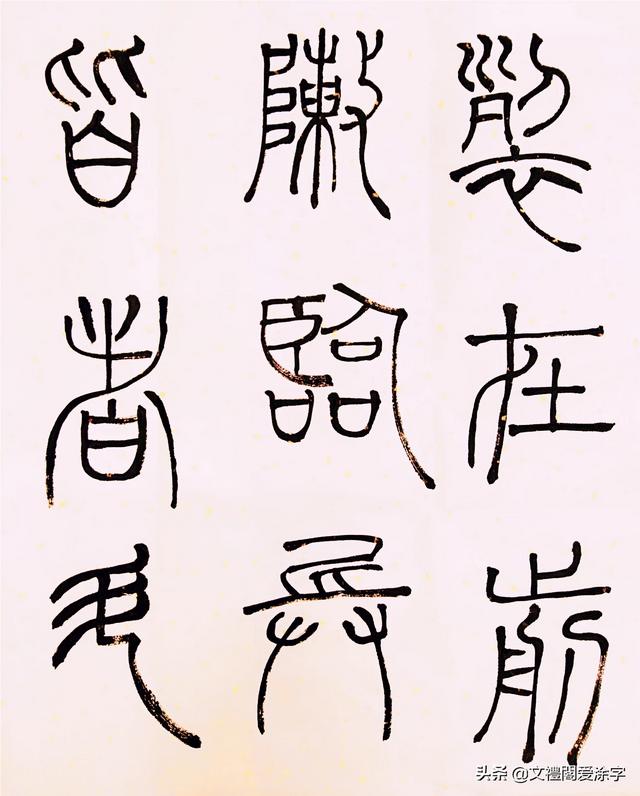 裂在前
陣臨兵
皆者鬥
头条 @文禮閣爱涂字